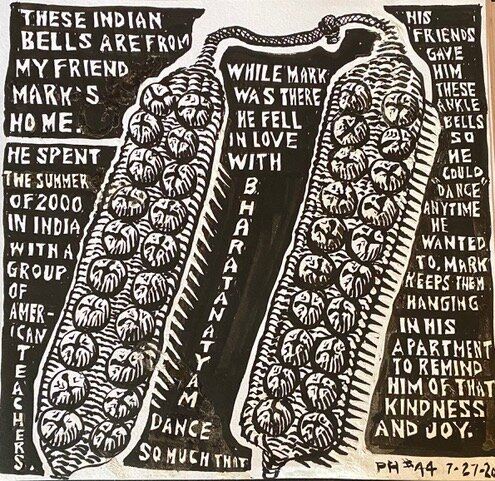 THESE INDIAN
BELLS ARE FROM
MY FRIEND
MARK'S
HOME.
HE SPENT
THE SUMMER
OF 2000
IN INDIA
WITH A
GROUP
OF
AMER-
ICAN
TEACHERS.
WHILE MARK
WAS THERE
HE FELL
IN LOVE
WITH
BHARATANATYAM
DANCE
SO MUCH THAT
HIS
FRIENDS
GAVE
HIM
THESE
ANKLE
BELLS
SO
HE
COULD
DANCE
ANYTIME
HE
WANTED
TO. MARK
KEEPS THEM
HANGING
IN HIS
APARTMENT
TO REMIND
HIM OF THAT
KINDNESS
AND JOY.
PH #44 7-27-20